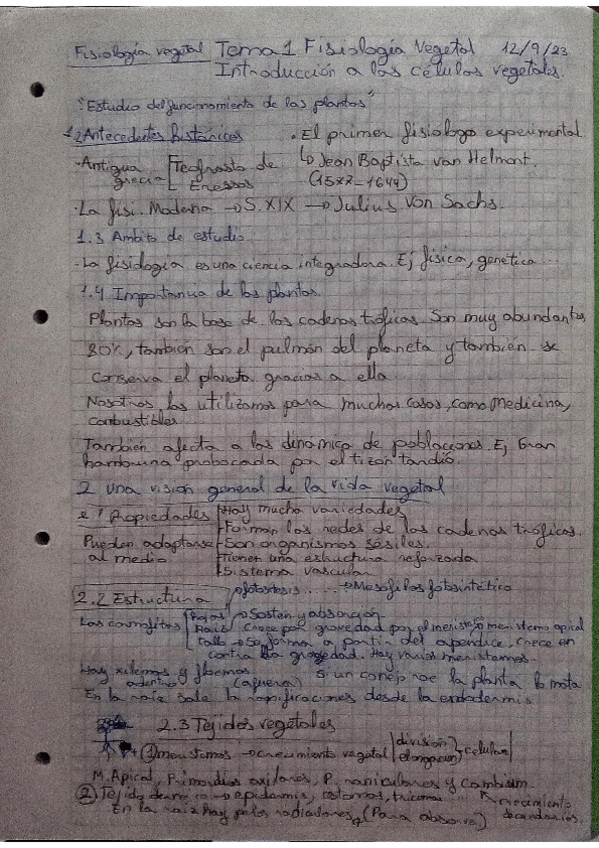 Fisiología vegetal Tema 1 Fisiología Vegetal 12/9/23
Introducción a las células vegetales.
"Estudio del funcionamiento de las plantas"
1.2 Antecedentes históricos · El primer fisiologo experimental
· Antigua grecia [Teofrasto de Eressos
↳ Jean Baptista van Helmont. (1577-1644)
· La fisi. Moderna → S. XIX → Julius Von Sachs.
1.3 Ambito de estudio
· La fisiología es una ciencia integradora. Ej física, genética ...
1.4 Importancia de las plantas.
Plantas son la base de las cadenas tróficas. Son muy abundantes,
80%, también son el pulmón del planeta y también se
conserva el planeta gracias a ella
Nosotros las utilizamos para muchas cosas, como medicina,
combustibles
También afecta a las dinamica de poblaciones. Ej Gran
hambruna probocada por el tizón tardío.
2 Una visión general de la vida vegetal
2.1 Propiedades Hay mucha variedades
Forman las redes de las cadenas tróficas.
Pueden adaptarse Son organismos sésiles.
al medio Tienen una estructura reforzada
Sistema vascular
2.2 Estructura → fotosíntesis .... → Mesofilos fotosintético
Las cormofitas Hojas
Raíz → Sostén y absorción
Crece por gravedad por el meristemo apical
Tallo → Se forma a partir del apéndice, crece en
contra la gravedad. Hay varios meristamos.
Hay xilemas y floemas. Si un conejo roe la planta la mata
adentro (afuera)
En la raíz sale la ramificaciones desde la endodermis
2.3 Tejidos vegetales
① meristemos → crecimiento vegetal |división elongación| celular
M. Apical, Primordios axilares, P. radiculares y Cambium
↖ crecimiento secundarios.
② Tejido dermico → epidermis, estomas, tricomas ...
En la raiz hay pelos radiculares (Para absorver)